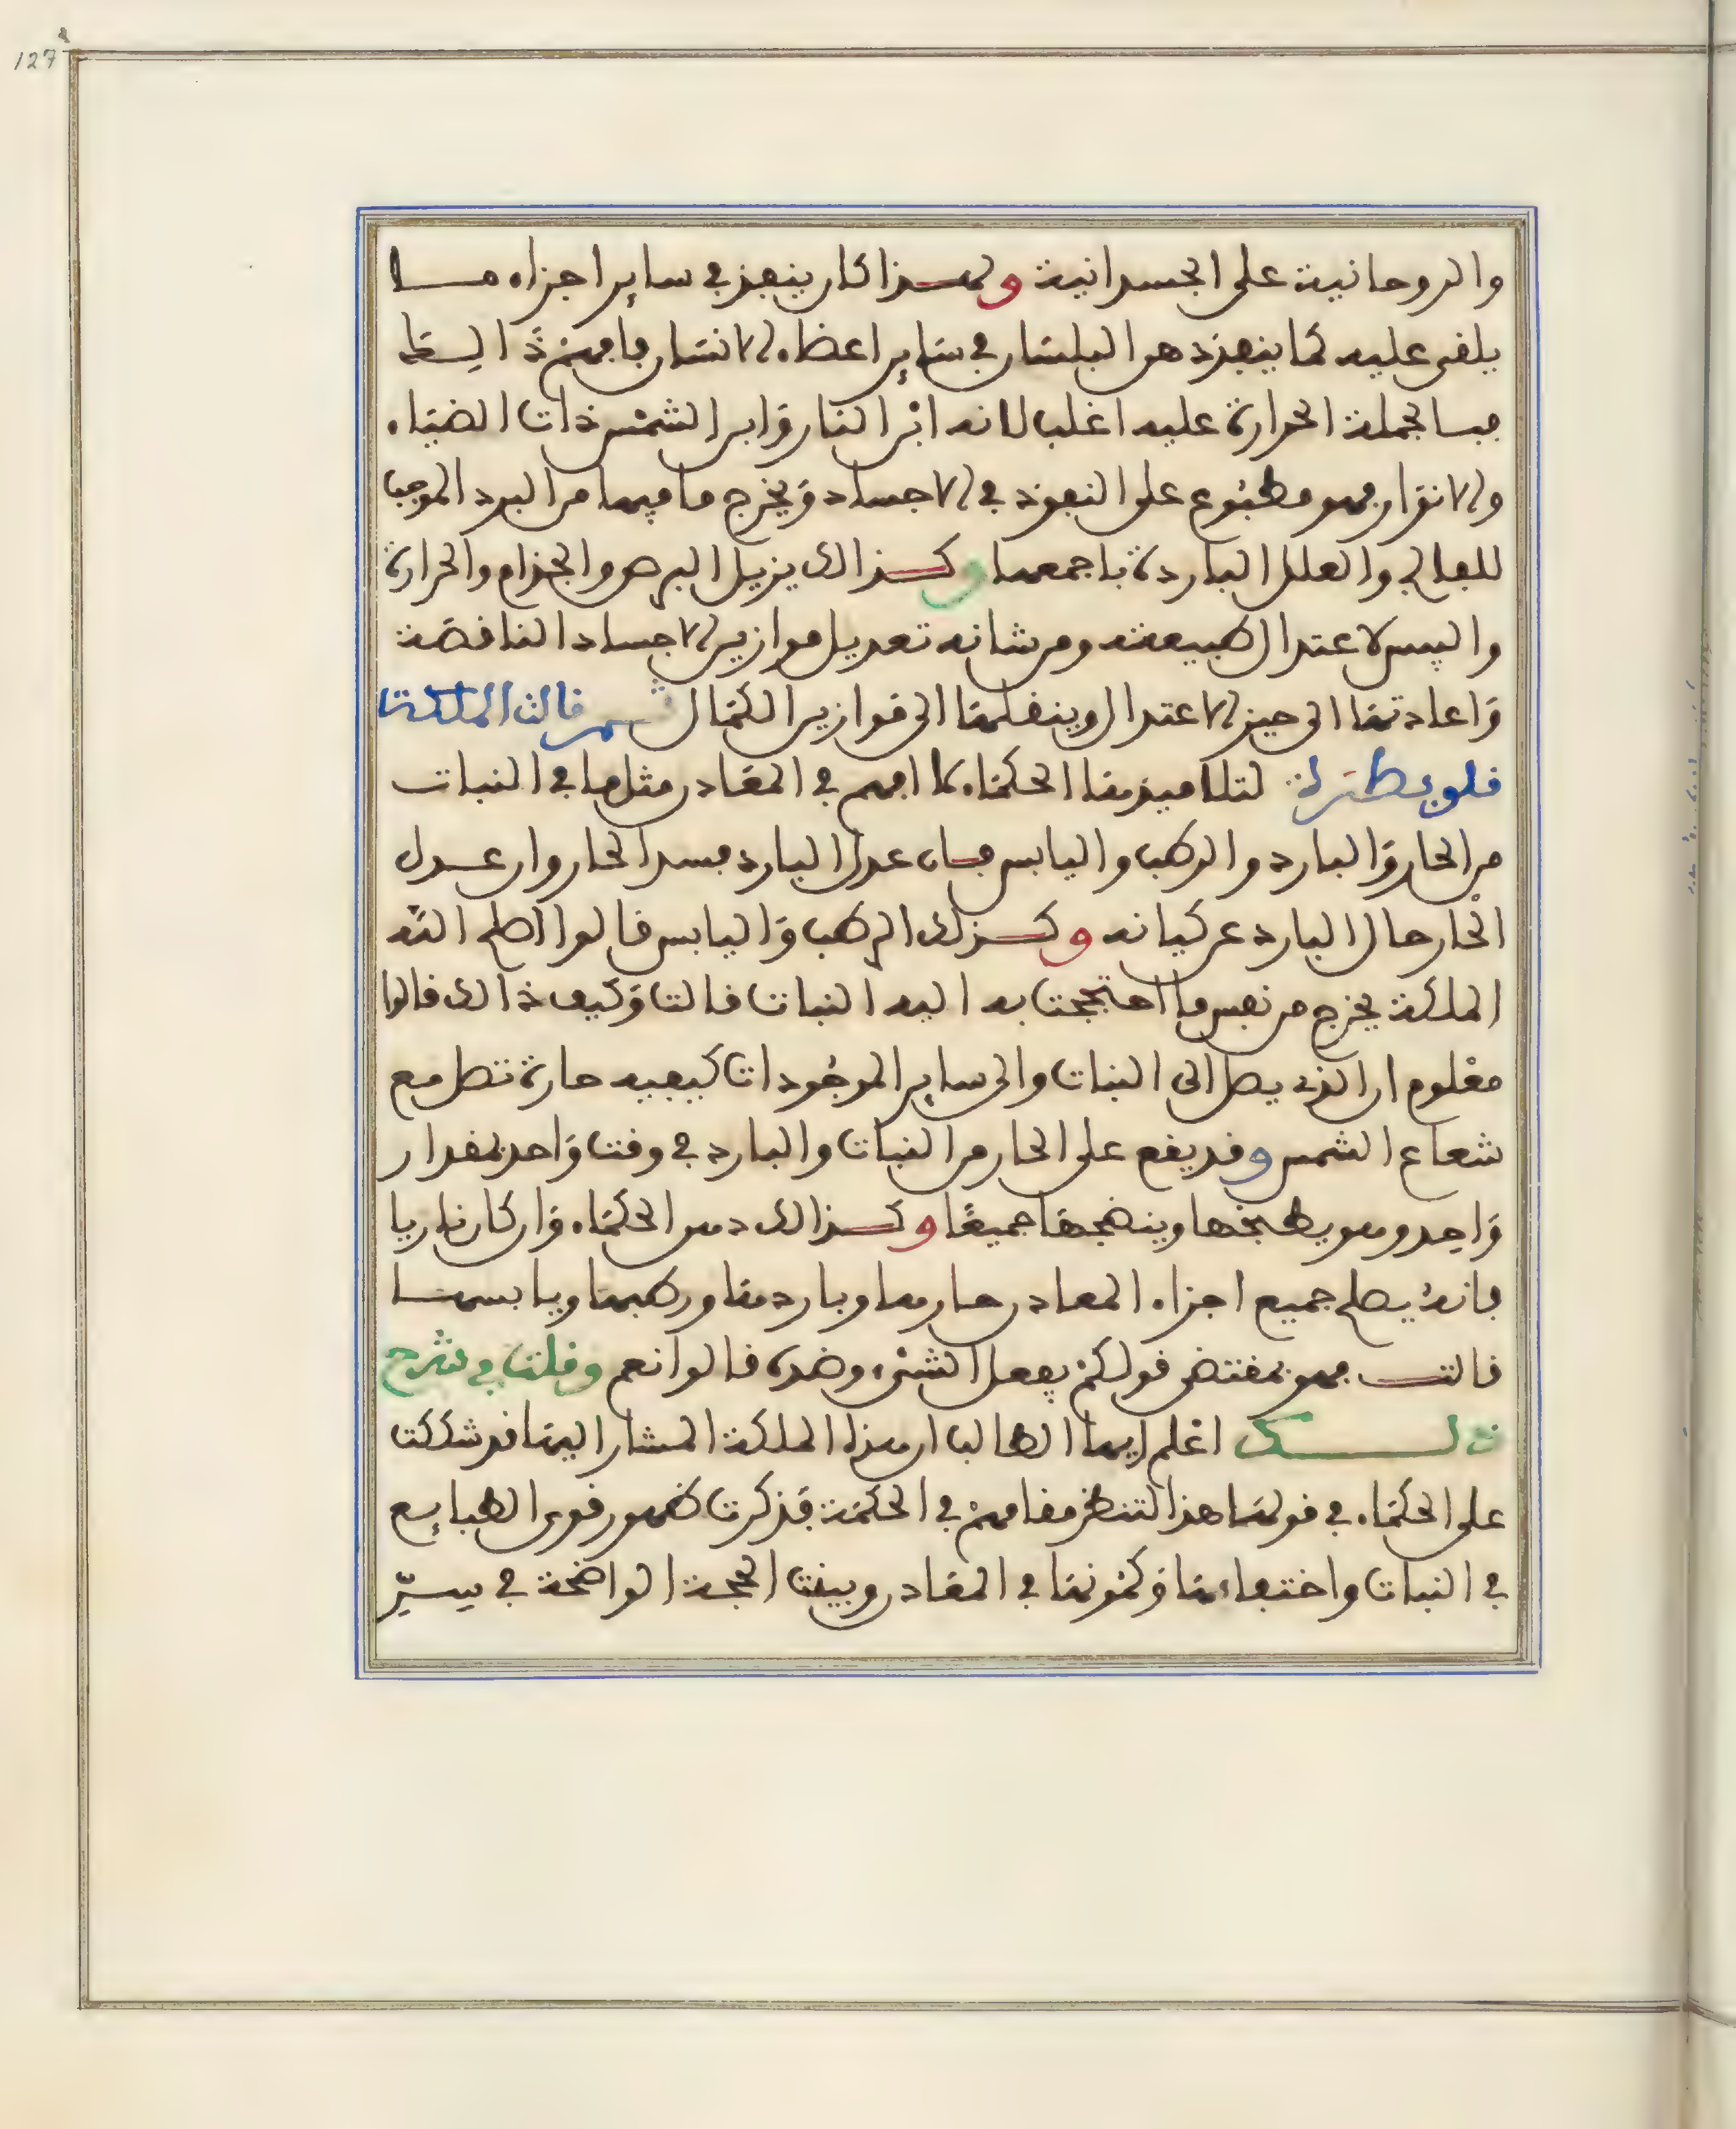 127
والروحانية على الجسدانية ولهـذا كان ينفذ في ساير اجزاء مـا
يلقى عليه كما ينفذ دهن البلسان في ساير اعضاء الانسان فامهنة
الحرارة عليه اغلب لانه ابن النار وابن الشمس ذات الضياء
والانوار فهو مطبوع على النفوذ في الاجساد ويخرج ما فيها من البرد الموجب
للفالج والعلل الباردة باجمعها وكـذالك يزيل البرص والجذام والحرارة
واليبس لاعتدال طبيعته ومن شانه تعديل موازين الاجساد الناقصة
واعادتها الى حيز الاعتدال وينقلها الى موازين الكمال ثـم قالت الملكة
قلوبطرة لتلاميذها الحكماء لا افهم في المعادن مثل ما في النبات
من الحار والبارد والرطب واليابس فـان عدل البارد فسد الحار وان عـدل
الحار حال البارد عن كيانه وكـذلك الرطب واليابس قالوا اصلح الله
الملكة يخرج من نفس ما احتججت به اليه النبات قالت وكيف ذالك قالوا
معلوم ان الذي يصل الى النبات والى ساير الموجودات كيفيه حارة تصل مع
شعاع الشمس وقد يقع على الحار من النبات والبارد في وقت واحد بمقدار
واحد وهو يطبخها وينضجها جميعا وكـذالك دهن الحكماء وان كان ناريا
فانه يصلح جميع اجزاء المعادن حارها وباردها ورطبها ويابسهـا
قالت فهو بمقتضى قولكم يفعل الشيء وضده قالوا نعم وقلت في شرح
ذلـــك اعلم ايها الطالب ان هذه الملكة المشار اليها قد شككت
على الحكماء في قولها هذا لتنظر مقامهم في الحكمة فذكرت ظهور قوى الطبايع
في النبات واختفاءها وكمونها في المعادن وبينت الحجة الواضحة في سِرّ